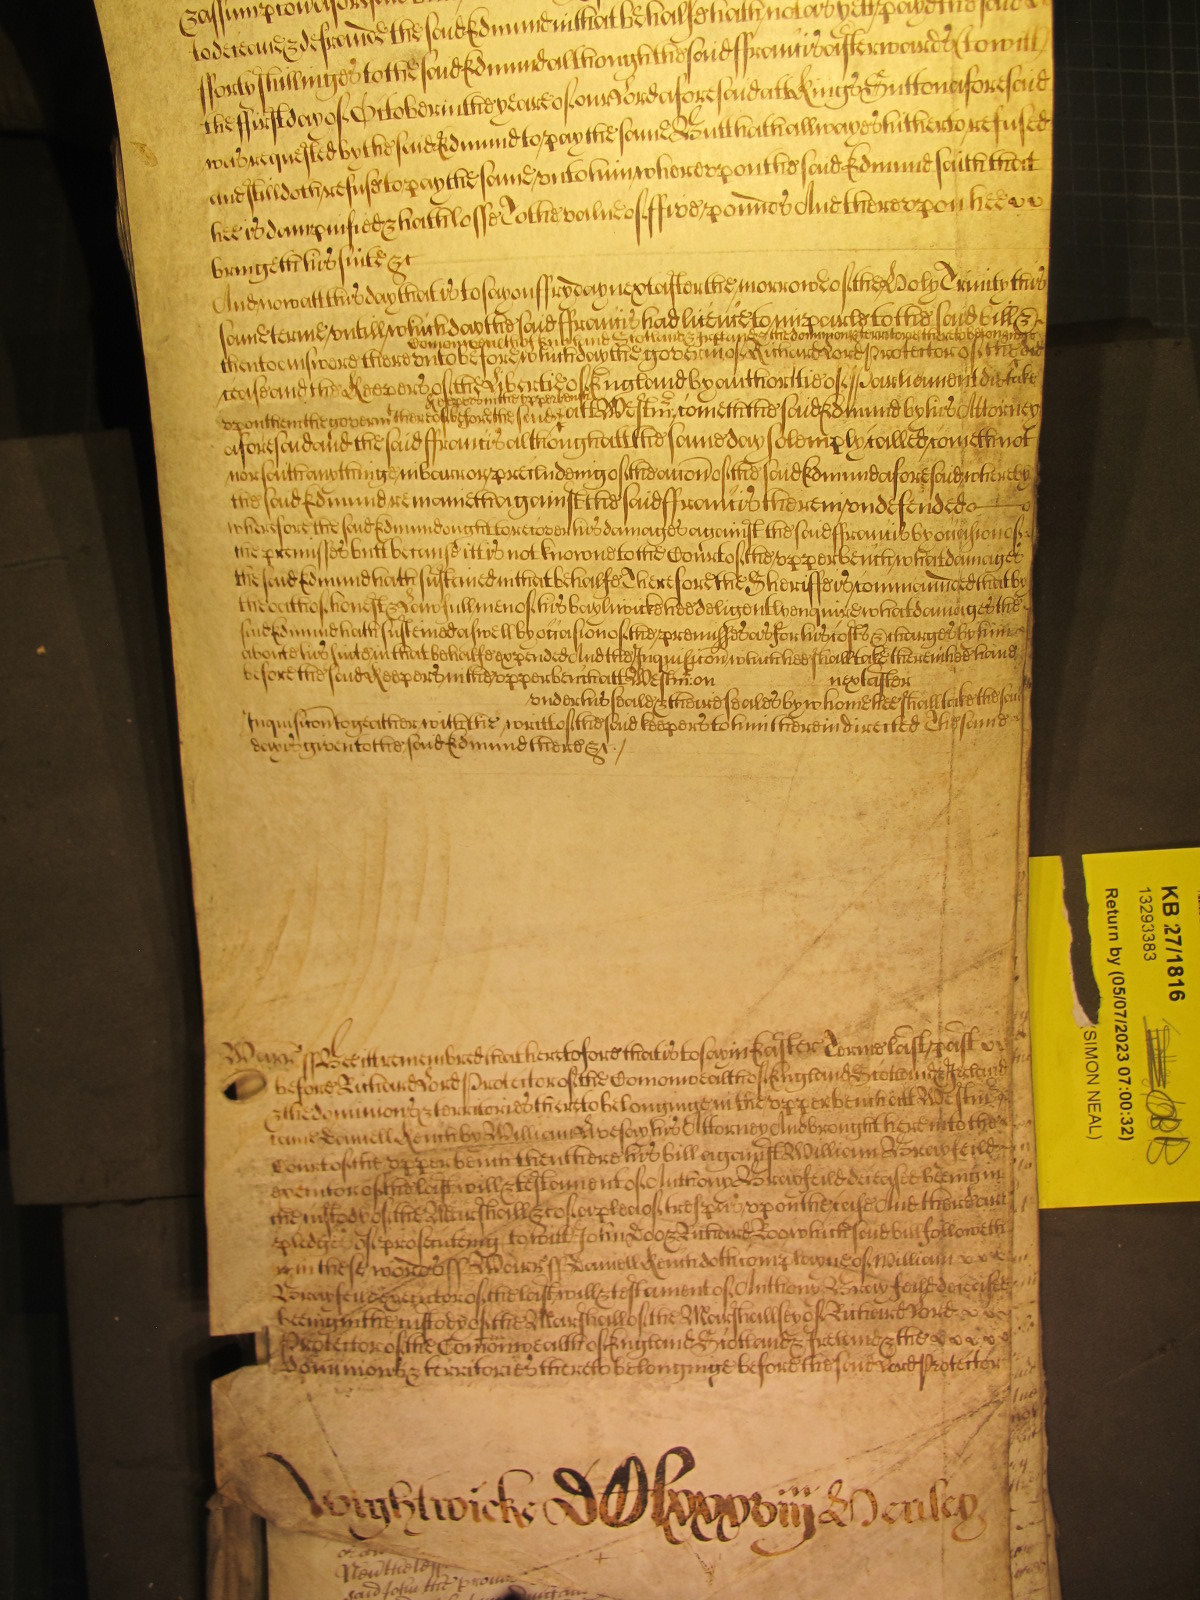 & assumption aforesaid
to deceave & defraude the said Edmund in that behalfe hath not as yet payd the said
fforty shillinges to the said Edmund although the said ffrancis afterwards (to witt)
the ffirst day of October in the yeare of our Lord aforesaid att Kings Sutton aforesaid
was requested by the said Edmund to pay the same But hath allwayes hitherto refused
and still doth refuse to pay the same unto him whereupon the said Edmund saith that
hee is dampnified & hath losse To the value of ffive pounds And thereupon hee
bringeth his suite &c
And now att this day that is to say on ffryday next after the morrowe of the Holy Trinity this
same terme untill which day the said ffrancis had licence to imparle to the said bill &
Comonwealth of England Scotland & Ireland & the dominions & territories thereto belonging
then to answere thereunto before which day the governm of Richard Lord Protector of the did
cease and the Keepers of the Libertie of England by authoritie of Parliament did take
Keepers in the upper bench
upon them the governm thereof before the said att Westmr cometh the said Edmund by his Attorney
aforesaid and the said ffrancis although att the same day solemply called cometh not
nor saith anythinge in barr or precludeing of the accon of the said Edmund aforesaid whereby
the said Edmund remaineth against the said ffrancis therein undefended
wherefore the said Edmund ought to recover his damages against the said ffrancis by occasion of
the premisses but because itt is not knowne to the Court of the upper bench what damages
the said Edmund hath susteined in that behalfe Therefore the Sheriffe is commaunded that by
the oath of honest & lawfull men of his baylywicke hee deligently enquire what damages the
said Edmund hath susteined aswell by occasion of the premisses as for his costs & charges by him
about his suite in that behalfe expended And the Inquisicon which hee shall take therein hee have
before the said Keepers in the upper bench att Westmr on next after
under his seale & the seales by whome hee shall take the said
Inquisiton togeather with the writt of the said keepers to him therein directed The same
day is given to the said Edmund there &c
Warr ss Bee itt remembred that heretofore that is to say in Easter Terme last past
before Richard Lord Protector of the Comonwealth of England Scotland & Ireland
& the dominions & territories thereto belonginge in the upper bench att Westmr
came Daniell by William his Attorney And brought here into the
Court of the upper bench then there his bill against William Brayfeild
executor of the last will & testament of Anthony Brayfeild deceased beeing in
the custody of the Marshall &c of a plea of trespas upon the case And there are
pledges of prosecuteing to witt John Doo & Richard Roo which said bill followeth
in these words ss Warr ss Daniell doth complayne of William
Brayfeild executor of the last will & testament of Anthony Brayfeild deceased
beeing in the custody of the Marshall of the Marshallsey of Richard Lord
Protector of the Comonwealth of England Scotland & Ireland & the
dominions & territories thereto belonginge before the said Lord Protector
Wightwicke DClxxxxviij Henley
Neverthelesse
said John the
KB 27/1816
13293383
Return by (05/07/2023 07:00:32)
(SIMON NEAL)